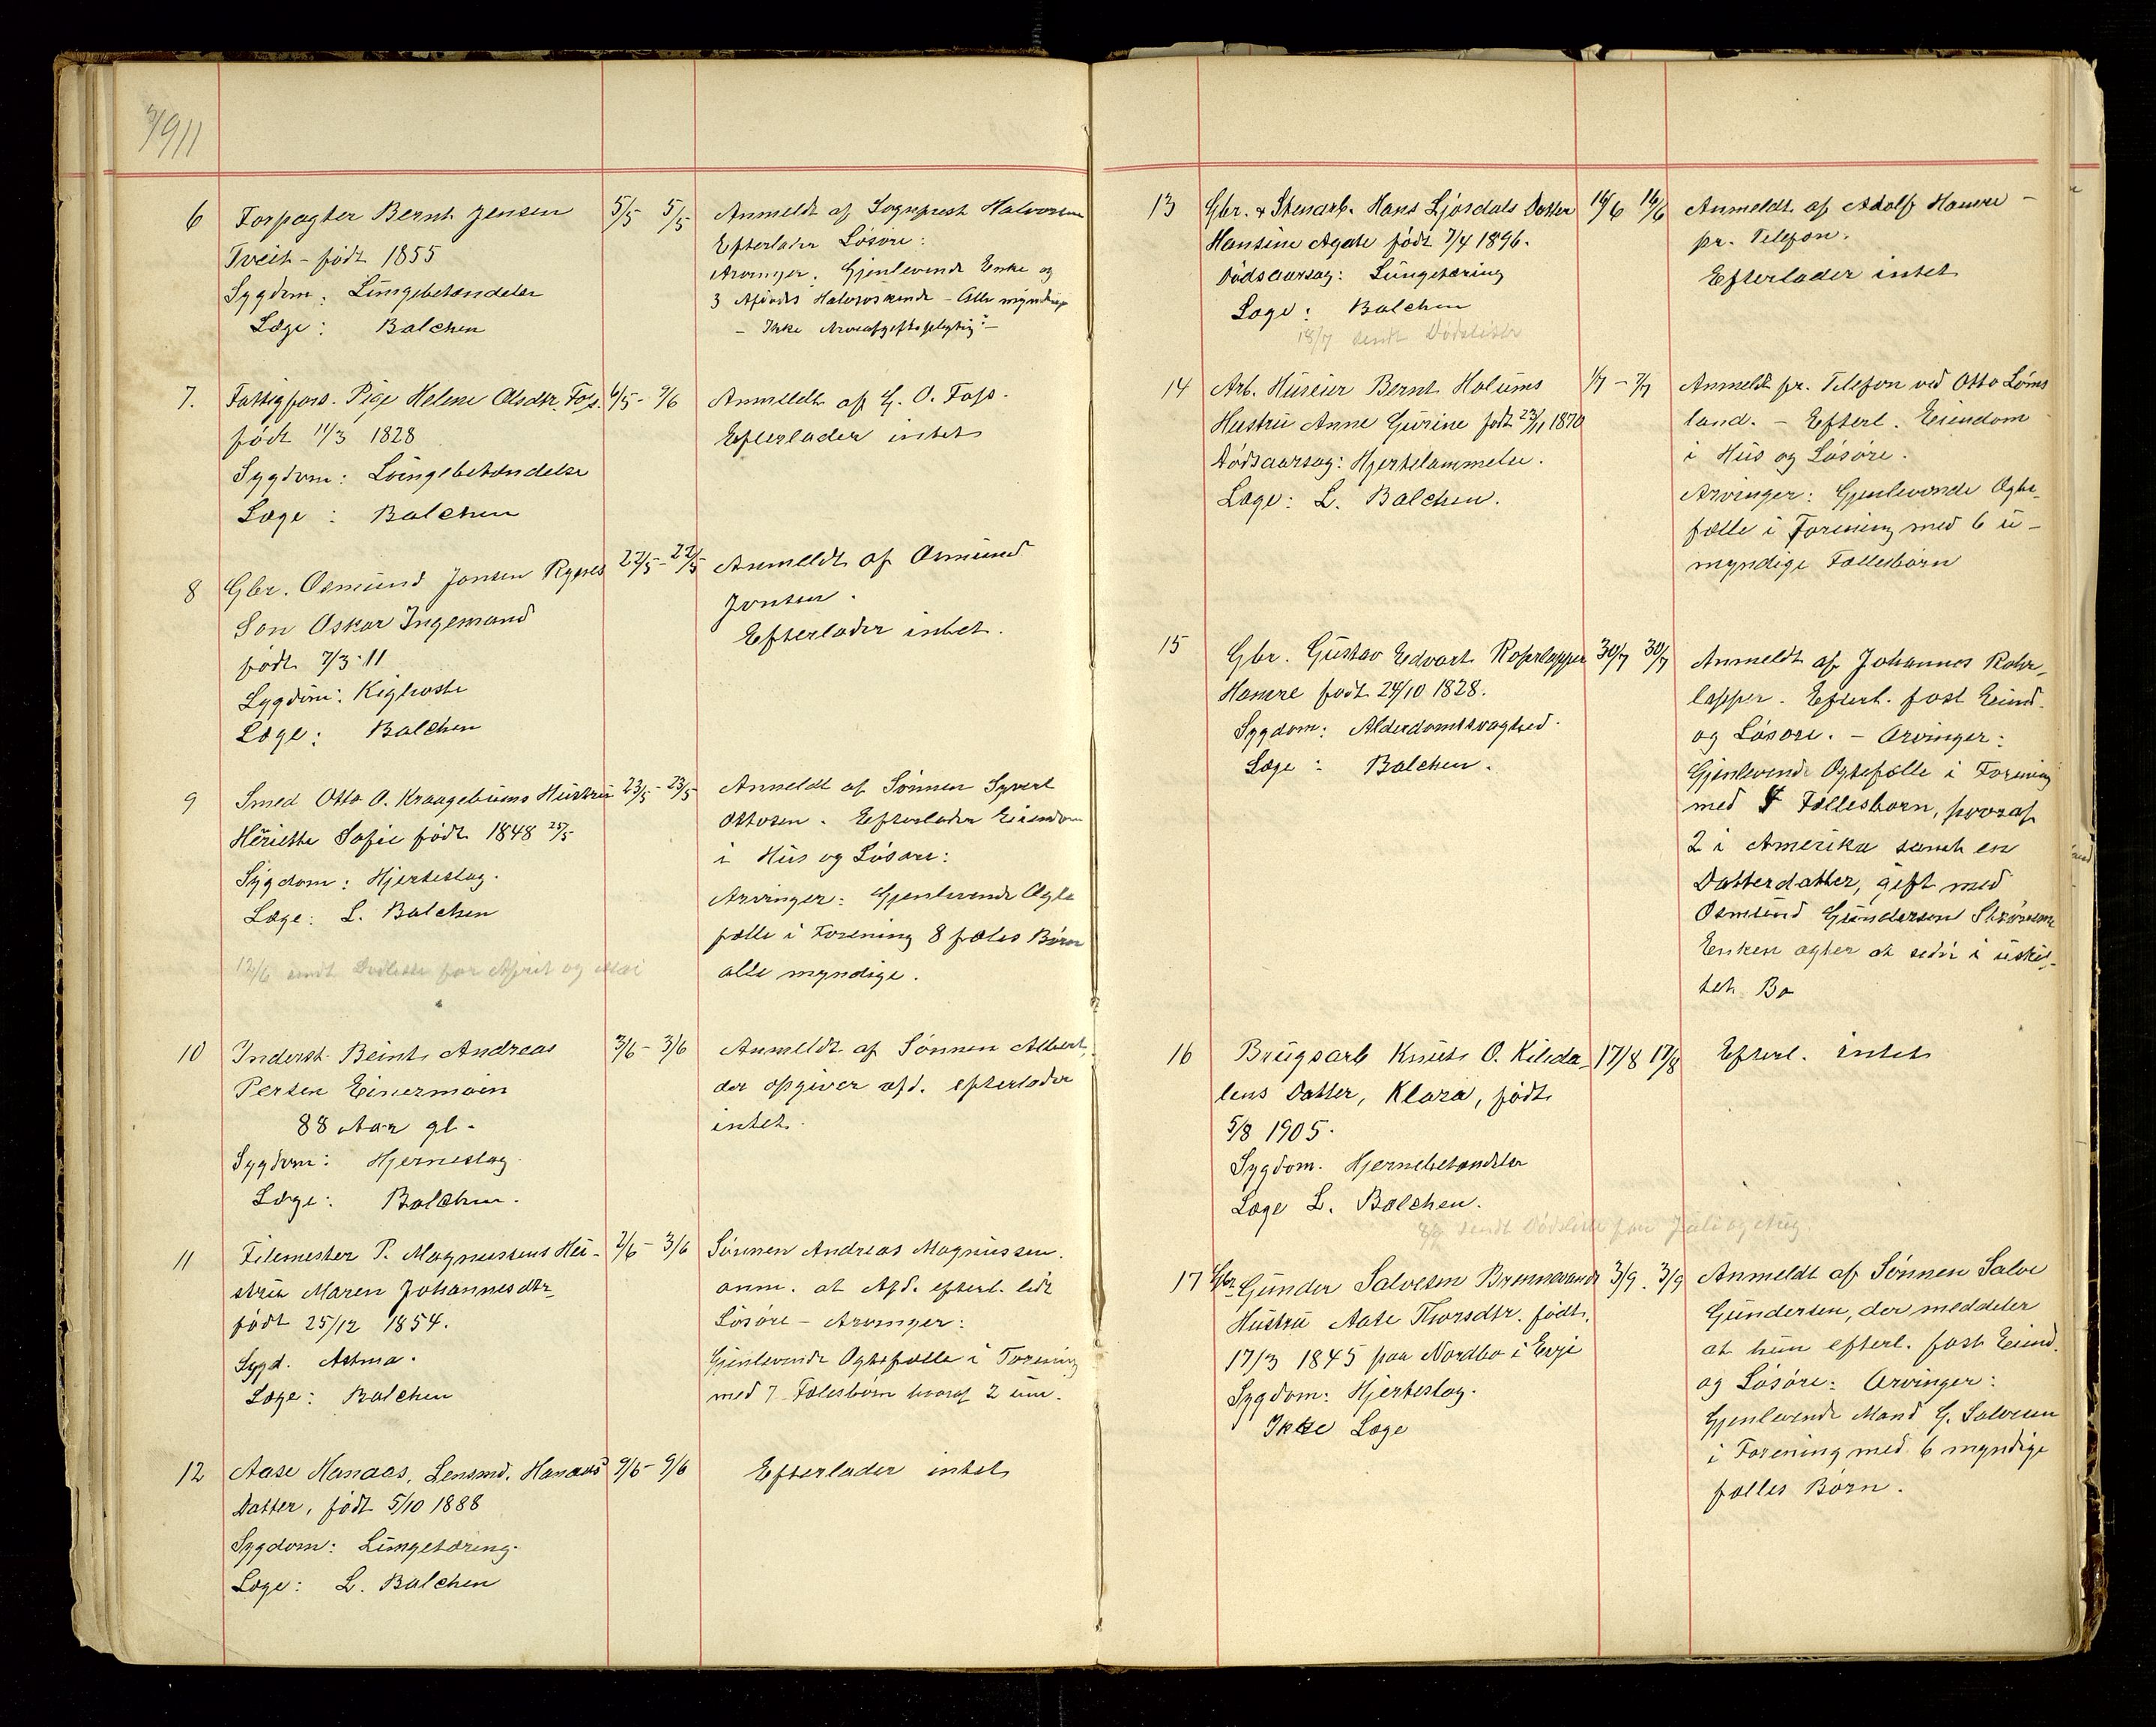 1911
6 Forpagter Bernt Jensen 5/5 5/5 Anmeldt af Sognprest Halvorsen
Tveit - født 1855 Efterlader Løsøre:
Sygdom: Lungebetændelse Arvinger: Gjenlevende Enke og
Læge: Balchen 3 Afdødes Halvsøskende - Alle myndige
- Ikke Arveafgiftspligtig -
7. Fattigfors. Pige Helene Olsdtr. Foss. 6/5 - 9/6 Anmeldt af G. O. Foss.
født 11/3 1828 Efterlader intet
Sygdom: Lungebetændelse
Læge: Balchen
8 Gbr. Osmund Jonsen Rypes 22/5 - 22/5 Anmeldt af Osmund
Søn Oskar Ingemand Jonsen.
født 7/3-11 Efterlader intet.
Sygdom: Kighoste
Læge: Balchen
9 Smed Otto O. Kraagebums Hustru 23/5 - 23/5 Anmeldt af Sønnen Syvert
Heriette Sofie født 1848 25/5 Ottosen. Efterlader Eiendom
Sygdom: Hjerteslag. i Hus og Løsøre:
Læge: L. Balchen Arvinger: Gjenlevende Ægte
fælle i Forening 8 fæles Børn
12/6 sendt Dødliste for April og Mai alle myndige.
10 Inderst Beint Andreas 3/6 - 3/6 Anmeldt af Sønnen Albert,
Persen Einermoen der opgiver afd. efterlader
88 Aar gl. intet.
Sygdom: Hjerneslag
Læge: Balchen.
11 Filemester P. Magnussens Hu- 2/6 - 3/6 Sønnen Andreas Magnussen.
stru Maren Johannesdtr. anm. at Afd. efterl. lidt
født 25/12 1854. Løsøre - Arvinger:
Sygd. Astma. Gjenlevende Ægtefælle i Forening
Læge: Balchen med 7 Fælesbørn hvoraf 2 um.
12 Aase Hanaas, Lensmd. Hanaas 9/6 - 9/6 Efterlader intet
Datter, født 5/10 1888
Sygdom: Lungetæring.
Læge: L. Balchen
13 Gbr. & Stenarb. Hans Ljosdals Datter 16/6 16/6 Anmeldt af Adolf Honere -
Hansine Agate født 7/4 1896. pr. Telefon.
Dødsaarsag: Lungetæring Efterlader intet
Læge: Balchen
18/7 sendt Dødsliste
14 Arb. Huseier Bernt Holums 1/7 - 7/7 Anmeldt pr. Telefon ved Otto Løms
Hustru Anne Gurine født 23/11 1870 land. - Efterl. Eiendom
Dødsaarsag: Hjertelammelse. i Hus og Løsøre.
Læge: L. Balchen. Arvinger: Gjenlevende Ægte-
fælle i Forening med 6 u-
myndige Fællesbørn
15 Gbr. Gustav Edvart Roßlapper 30/7 30/7 Anmeldt af Johannes Rohr-
Honere født 24/10 1828. lapper. Efterl. fast Eiend.
Sygdom: Alderdomssvaghed. og Løsøre. - Arvinger:
Læge: Balchen. Gjenlevende Ægtefælle i Forening
med Fællesbørn, hvoraf
2 i Amerika samt en
Datterdatter, gift med
Osmund Gundersen
Enken agter at sidde i uskif-
tet Bo
16 Brugsarb Knut O. Kileda- 17/8 17/8 Efterl. intet
lens Datter, Klara, født
5/8 1905.
Sygdom. Hjernebetændelse
Læge L. Balchen.
8/9 sendt Dødsliste for Juli og Aug.
17 Gbr. Gunder Salvesen Brennevands 3/9. 3/9 Anmeldt af Sønnen Salve
Hustru Aase Thorsdtr. født. Gundersen, der meddeler
17/3 1845 paa Nordbo i Evje at hun efterl. fast Eiend.
Sygdom: Hjerteslag. og Løsøre: Arvinger:
Ikke Læge Gjenlevende Mand G. Salvesen
i Forening med 6 myndige
fælles Børn.